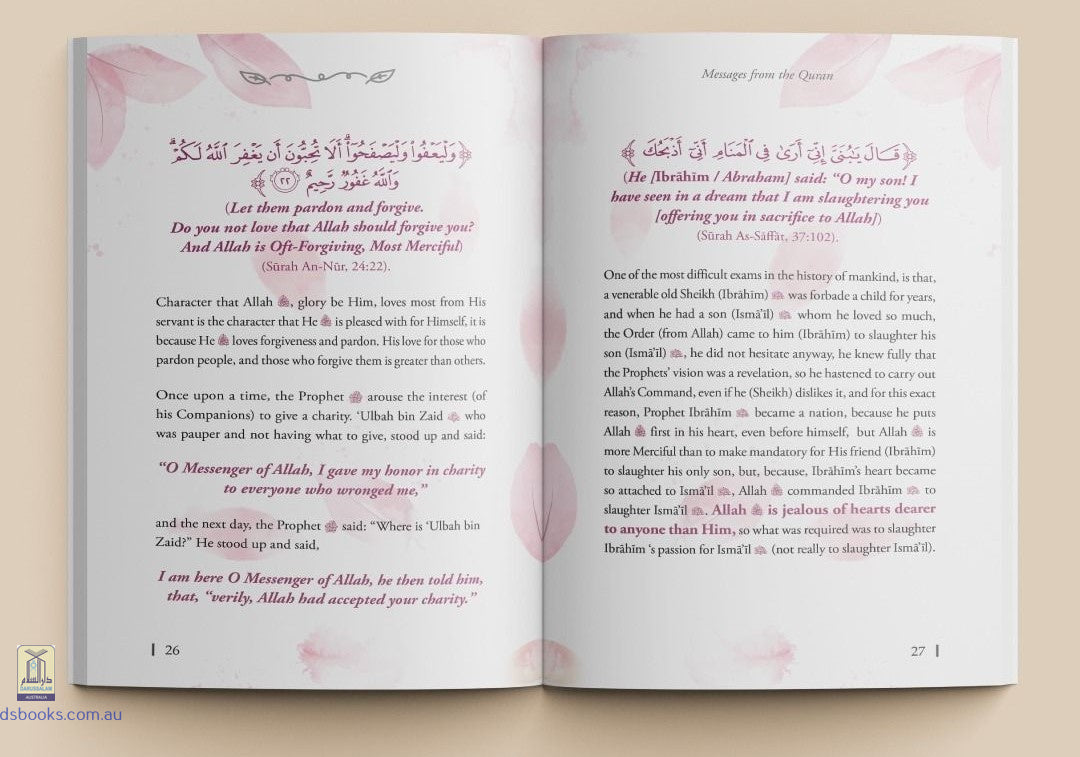 ﴿وَلْيَعْفُوا۟ وَلْيَصْفَحُوٓا۟ ۗ أَلَا تُحِبُّونَ أَن يَغْفِرَ ٱللَّهُ لَكُمْ ۗ
وَٱللَّهُ غَفُورٌ رَّحِيمٌ ٢٢﴾
(Let them pardon and forgive.
Do you not love that Allah should forgive you?
And Allah is Oft-Forgiving, Most Merciful)
(Sūrah An-Nūr, 24:22).
Character that Allah , glory be Him, loves most from His
servant is the character that He is pleased with for Himself, it is
because He loves forgiveness and pardon. His love for those who
pardon people, and those who forgive them is greater than others.
Once upon a time, the Prophet arouse the interest (of
his Companions) to give a charity. ‘Ulbah bin Zaid who
was pauper and not having what to give, stood up and said:
“O Messenger of Allah, I gave my honor in charity
to everyone who wronged me,”
and the next day, the Prophet said: “Where is ‘Ulbah bin
Zaid?” He stood up and said,
I am here O Messenger of Allah, he then told him,
that, “verily, Allah had accepted your charity.”
26
Messages from the Quran
﴿قَالَ يَٰبُنَىَّ إِنِّىٓ أَرَىٰ فِى ٱلْمَنَامِ أَنِّىٓ أَذْبَحُكَ﴾
(He [Ibrāhīm / Abraham] said: “O my son! I
have seen in a dream that I am slaughtering you
[offering you in sacrifice to Allah])
(Sūrah As-Sāffāt, 37:102).
One of the most difficult exams in the history of mankind, is that,
a venerable old Sheikh (Ibrāhīm) was forbade a child for years,
and when he had a son (Ismā‘īl) whom he loved so much,
the Order (from Allah) came to him (Ibrāhīm) to slaughter his
son (Ismā‘īl) , he did not hesitate anyway, he knew fully that
the Prophets’ vision was a revelation, so he hastened to carry out
Allah’s Command, even if he (Sheikh) dislikes it, and for this exact
reason, Prophet Ibrāhīm became a nation, because he puts
Allah first in his heart, even before himself, but Allah is
more Merciful than to make mandatory for His friend (Ibrāhīm)
to slaughter his only son, but, because, Ibrāhīm’s heart became
so attached to Ismā‘īl , Allah commanded Ibrāhīm to
slaughter Ismā‘īl . Allah is jealous of hearts dearer
to anyone than Him, so what was required was to slaughter
Ibrāhīm ‘s passion for Ismā‘īl (not really to slaughter Ismā‘īl).
27
دارالسلام
DARUSSALAM
AUSTRALIA
dsbooks.com.au